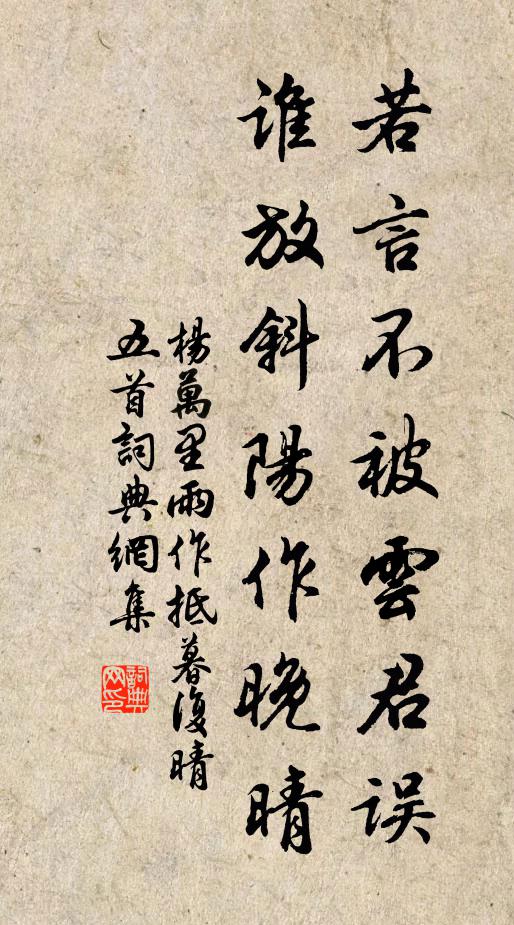 若言不被雲君误
谁放斜陽作晚晴
楊萬里雨作抵暮復晴
五首詞典網集
詞典网印